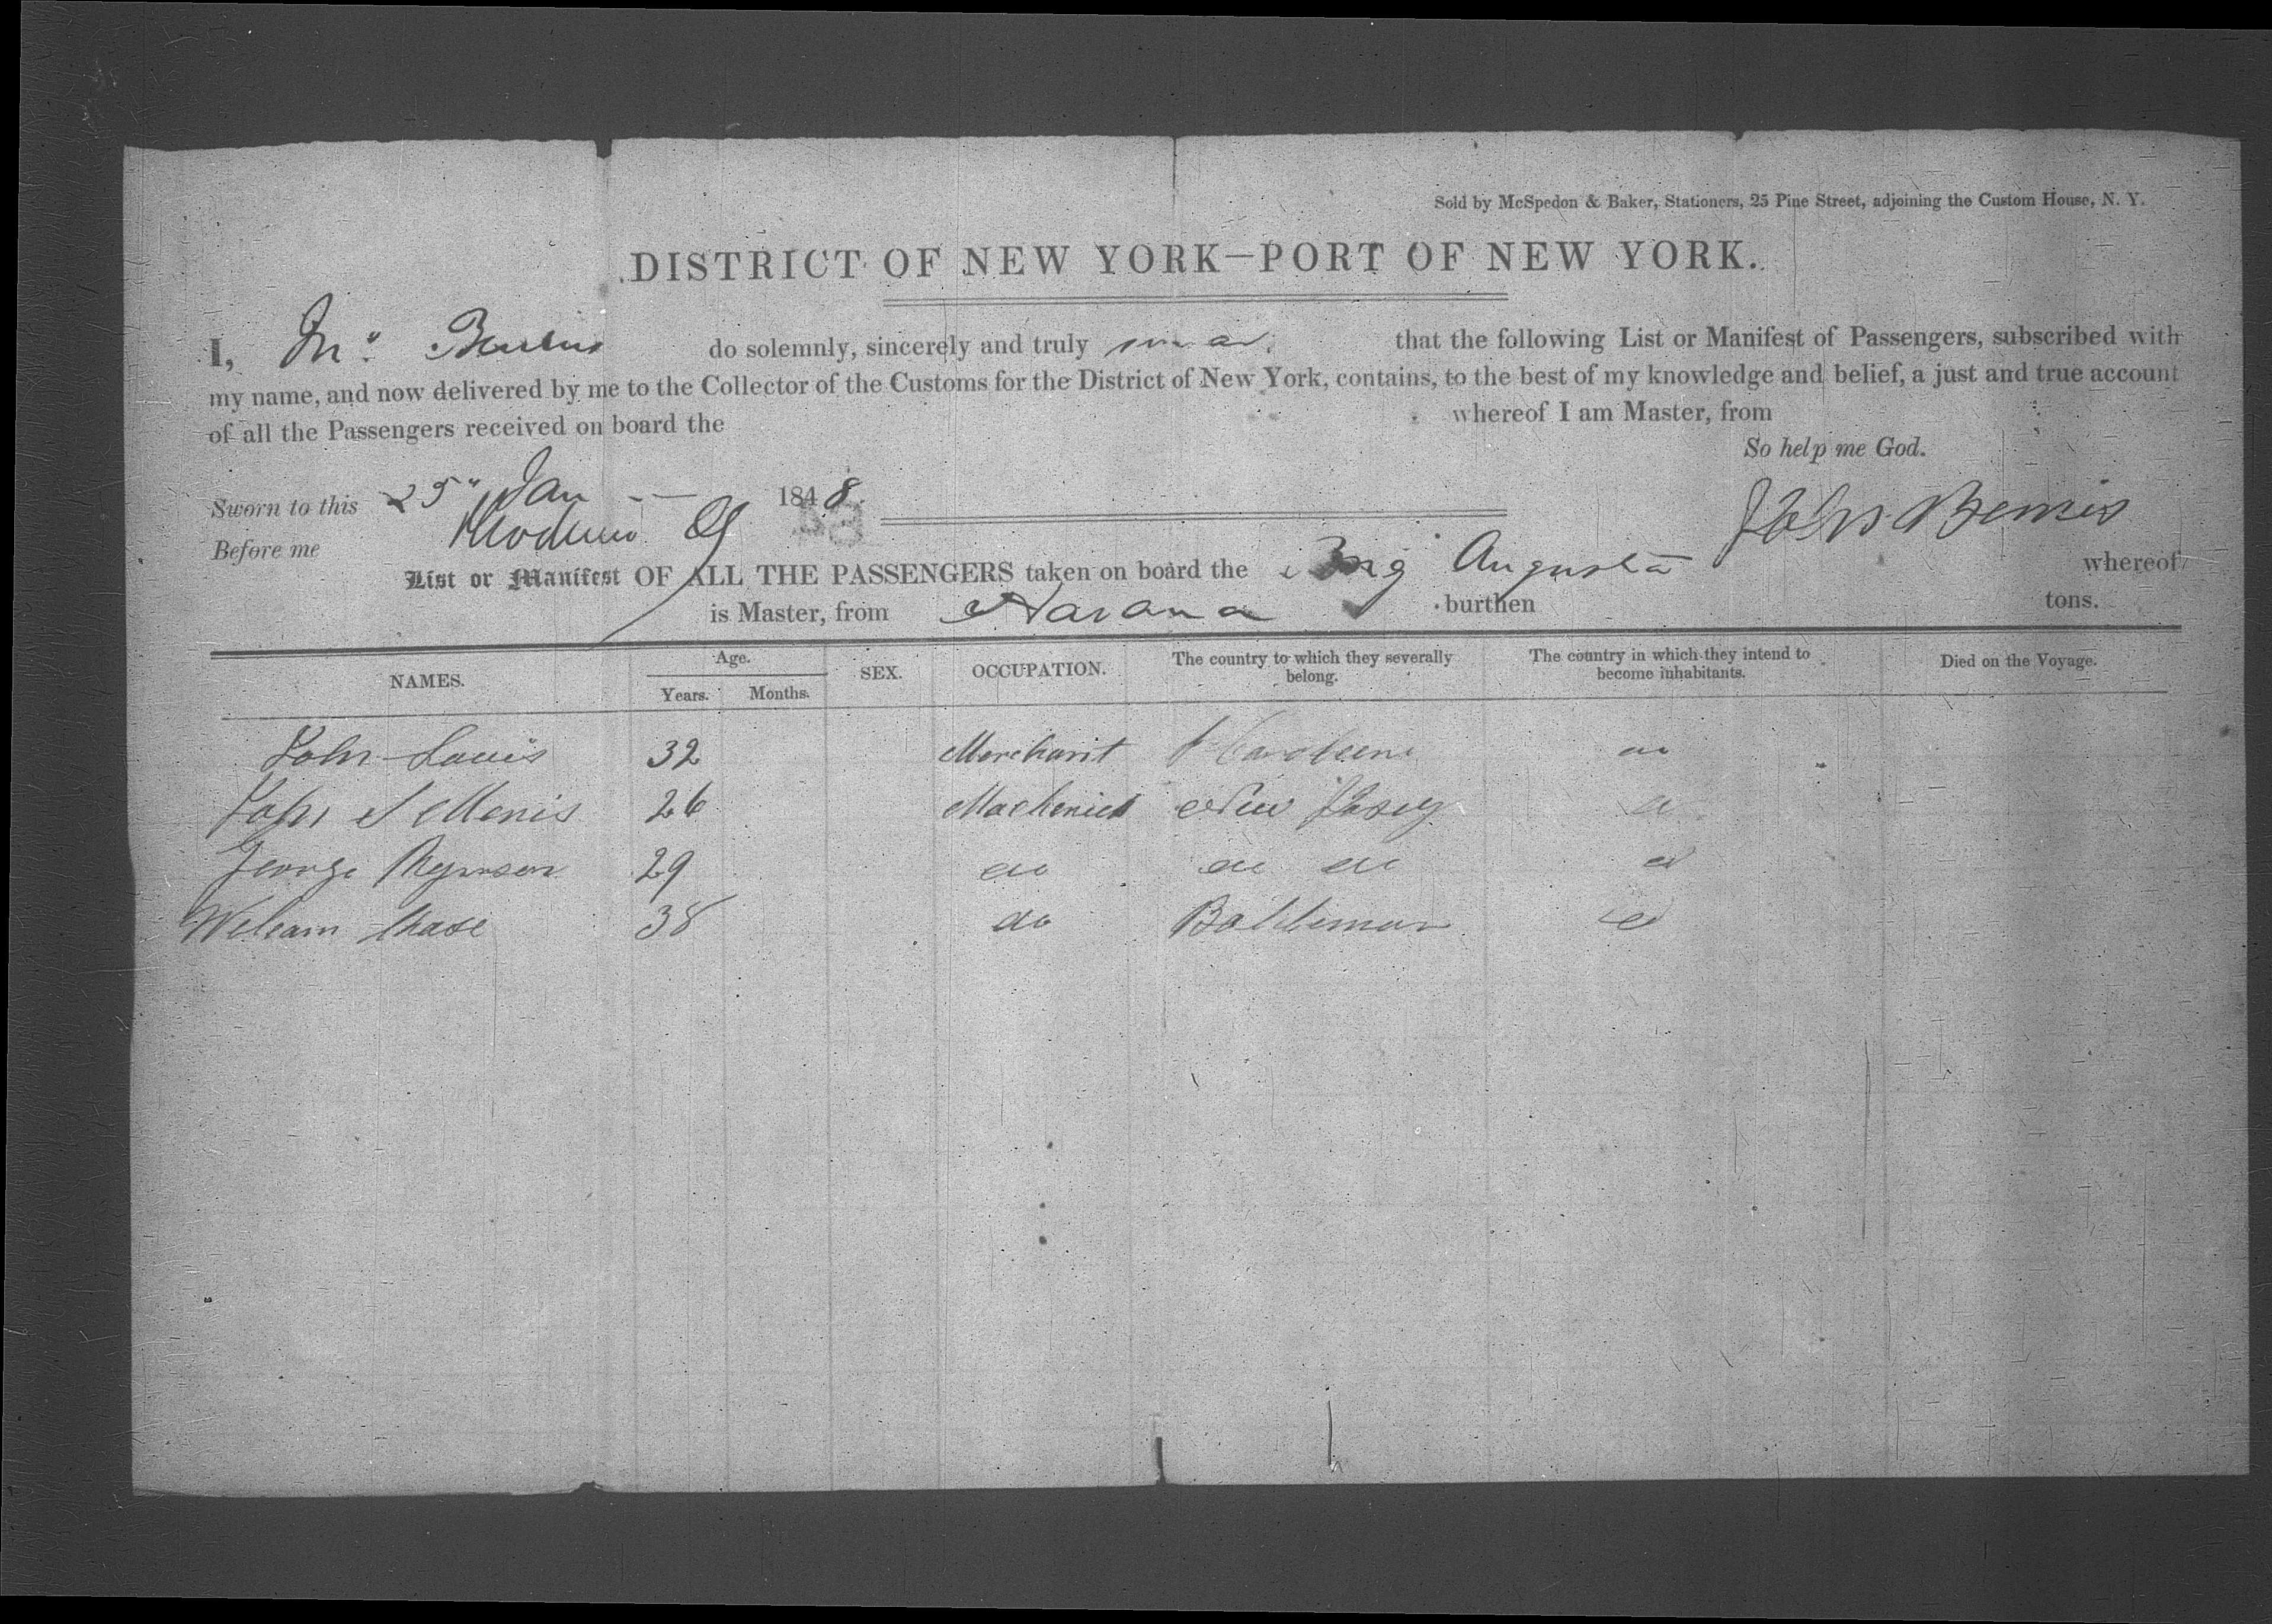 Sold by McSpedon & Baker, Stationers, 25 Pine Street, adjoining the Custom House, N. Y.
DISTRICT OF NEW YORK—PORT OF NEW YORK.
I, Jno. do solemnly, sincerely and truly swear that the following List or Manifest of Passengers, subscribed with
my name, and now delivered by me to the Collector of the Customs for the District of New York, contains, to the best of my knowledge and belief, a just and true account
of all the Passengers received on board the whereof I am Master, from
So help me God.
Sworn to this 25" Jan 1848.
Before me
John Bemis
List or Manifest OF ALL THE PASSENGERS taken on board the Brig Augusta whereof
is Master, from Havana burthen tons.
NAMES. Age. Years. Months. SEX. OCCUPATION. The country to which they severally belong. The country in which they intend to become inhabitants. Died on the Voyage.
John Louis 32 Merchant
John S 26 New Jersey
George 29 do do do
Weleam Chase 38 do